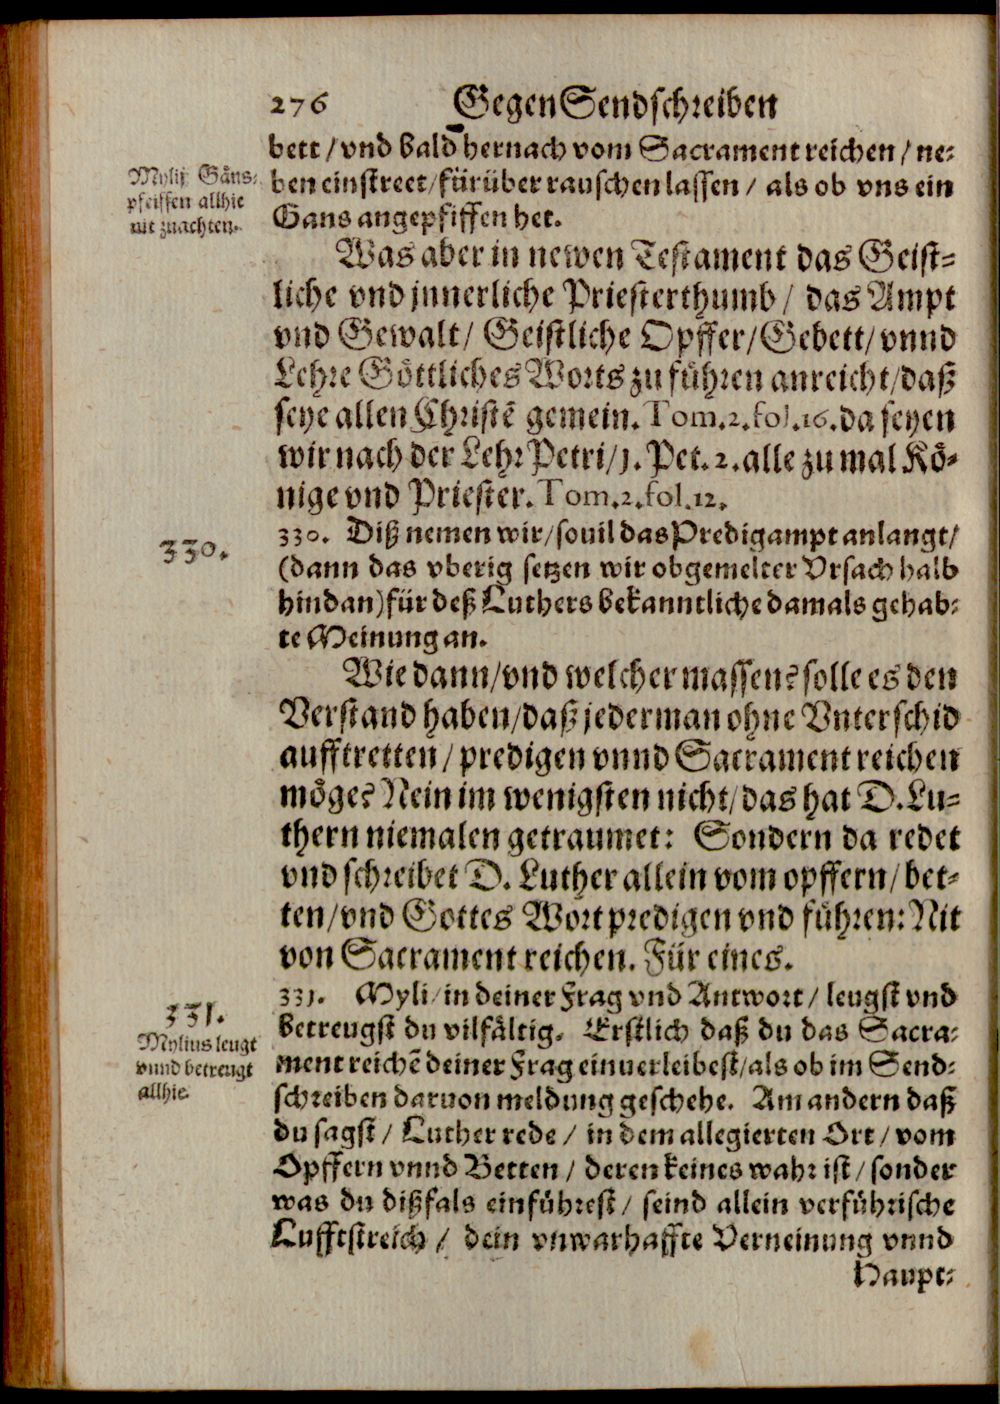 276 Gegen Sendschreiben
bett / vnd bald hernach vom Sacrament reichen / ne-
ben einstreet / fürüber rauschen lassen / als ob vns ein
Gans angepfiffen het.
Mylij Gäns-
pfeiffen allhie
nit zuachten.
Was aber in newen Testament das Geist-
liche vnd jnnerliche Priesterthumb / das Ampt
vnd Gewalt / Geistliche Opffer / Gebett / vnnd
Lehre Göttliches Worts zu führen anreicht / daß
seye allen Christē gemein. Tom.2.fol.16. da seyen
wir nach der Lehr Petri / 1. Pet. 2. alle zu mal Kö-
nige vnd Priester. Tom.2.fol.12.
330.
330. Diß nemen wir / souil das Predigampt anlangt /
(dann das vberig setzen wir obgemelter Vrsach halb
hindan) für deß Luthers bekanntliche damals gehab-
te Meinung an.
Wie dann / vnd welcher massen? solle es den
Verstand haben / daß jederman ohne Vnterschid
aufftretten / predigen vnnd Sacrament reichen
möge? Nein im wenigsten nicht / das hat D. Lu-
thern niemalen getraumet: Sondern da redet
vnd schreibet D. Luther allein vom opffern / bet-
ten / vnd Gottes Wort predigen vnd führen: Nit
von Sacrament reichen. Für eines.
331.
Mylius leugt
vnnd betreugt
allhie.
331. Myli / in deiner Frag vnd Antwort / leugst vnd
betreugst du vilfältig. Erstlich daß du das Sacra-
ment reichē deiner Frag einuerleibest / als ob im Send-
schreiben daruon meldung geschehe. Am andern daß
du sagst / Luther rede / in dem allegierten Ort / vom
Opffern vnnd Betten / deren keines wahr ist / sonder
was du dißfals einführest / seind allein verführische
Lufftstreich / dein vnwarhaffte Verneinung vnnd
Haupt-